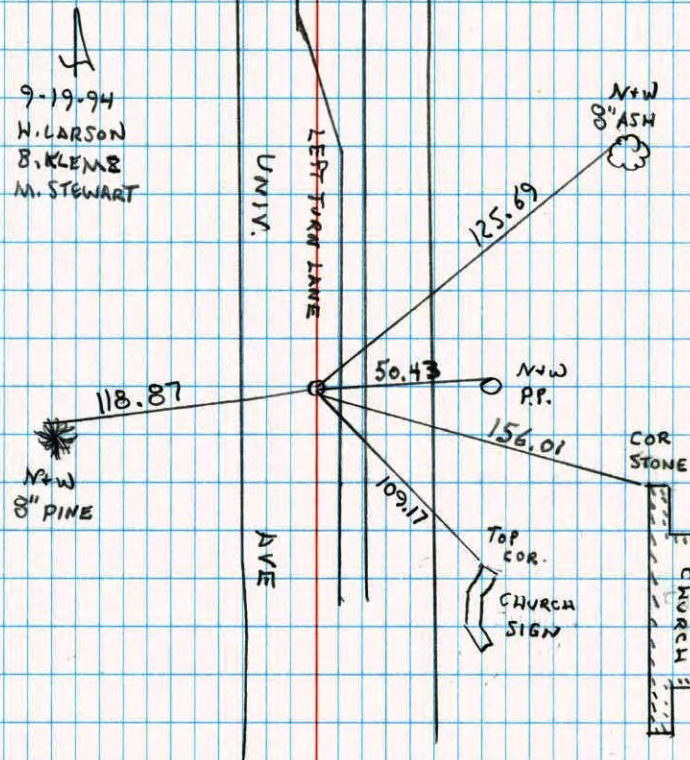 9-19-94
H. LARSON
B. KLEMZ
M. STEWART
UNIV.
LEFT TURN LANE
N+W
8" ASH
125.69
50.43
N+W
P.P.
118.87
156.01
COR
STONE
N+W
8" PINE
109.17
TOP
COR.
CHURCH
SIGN
AVE
CHURCH